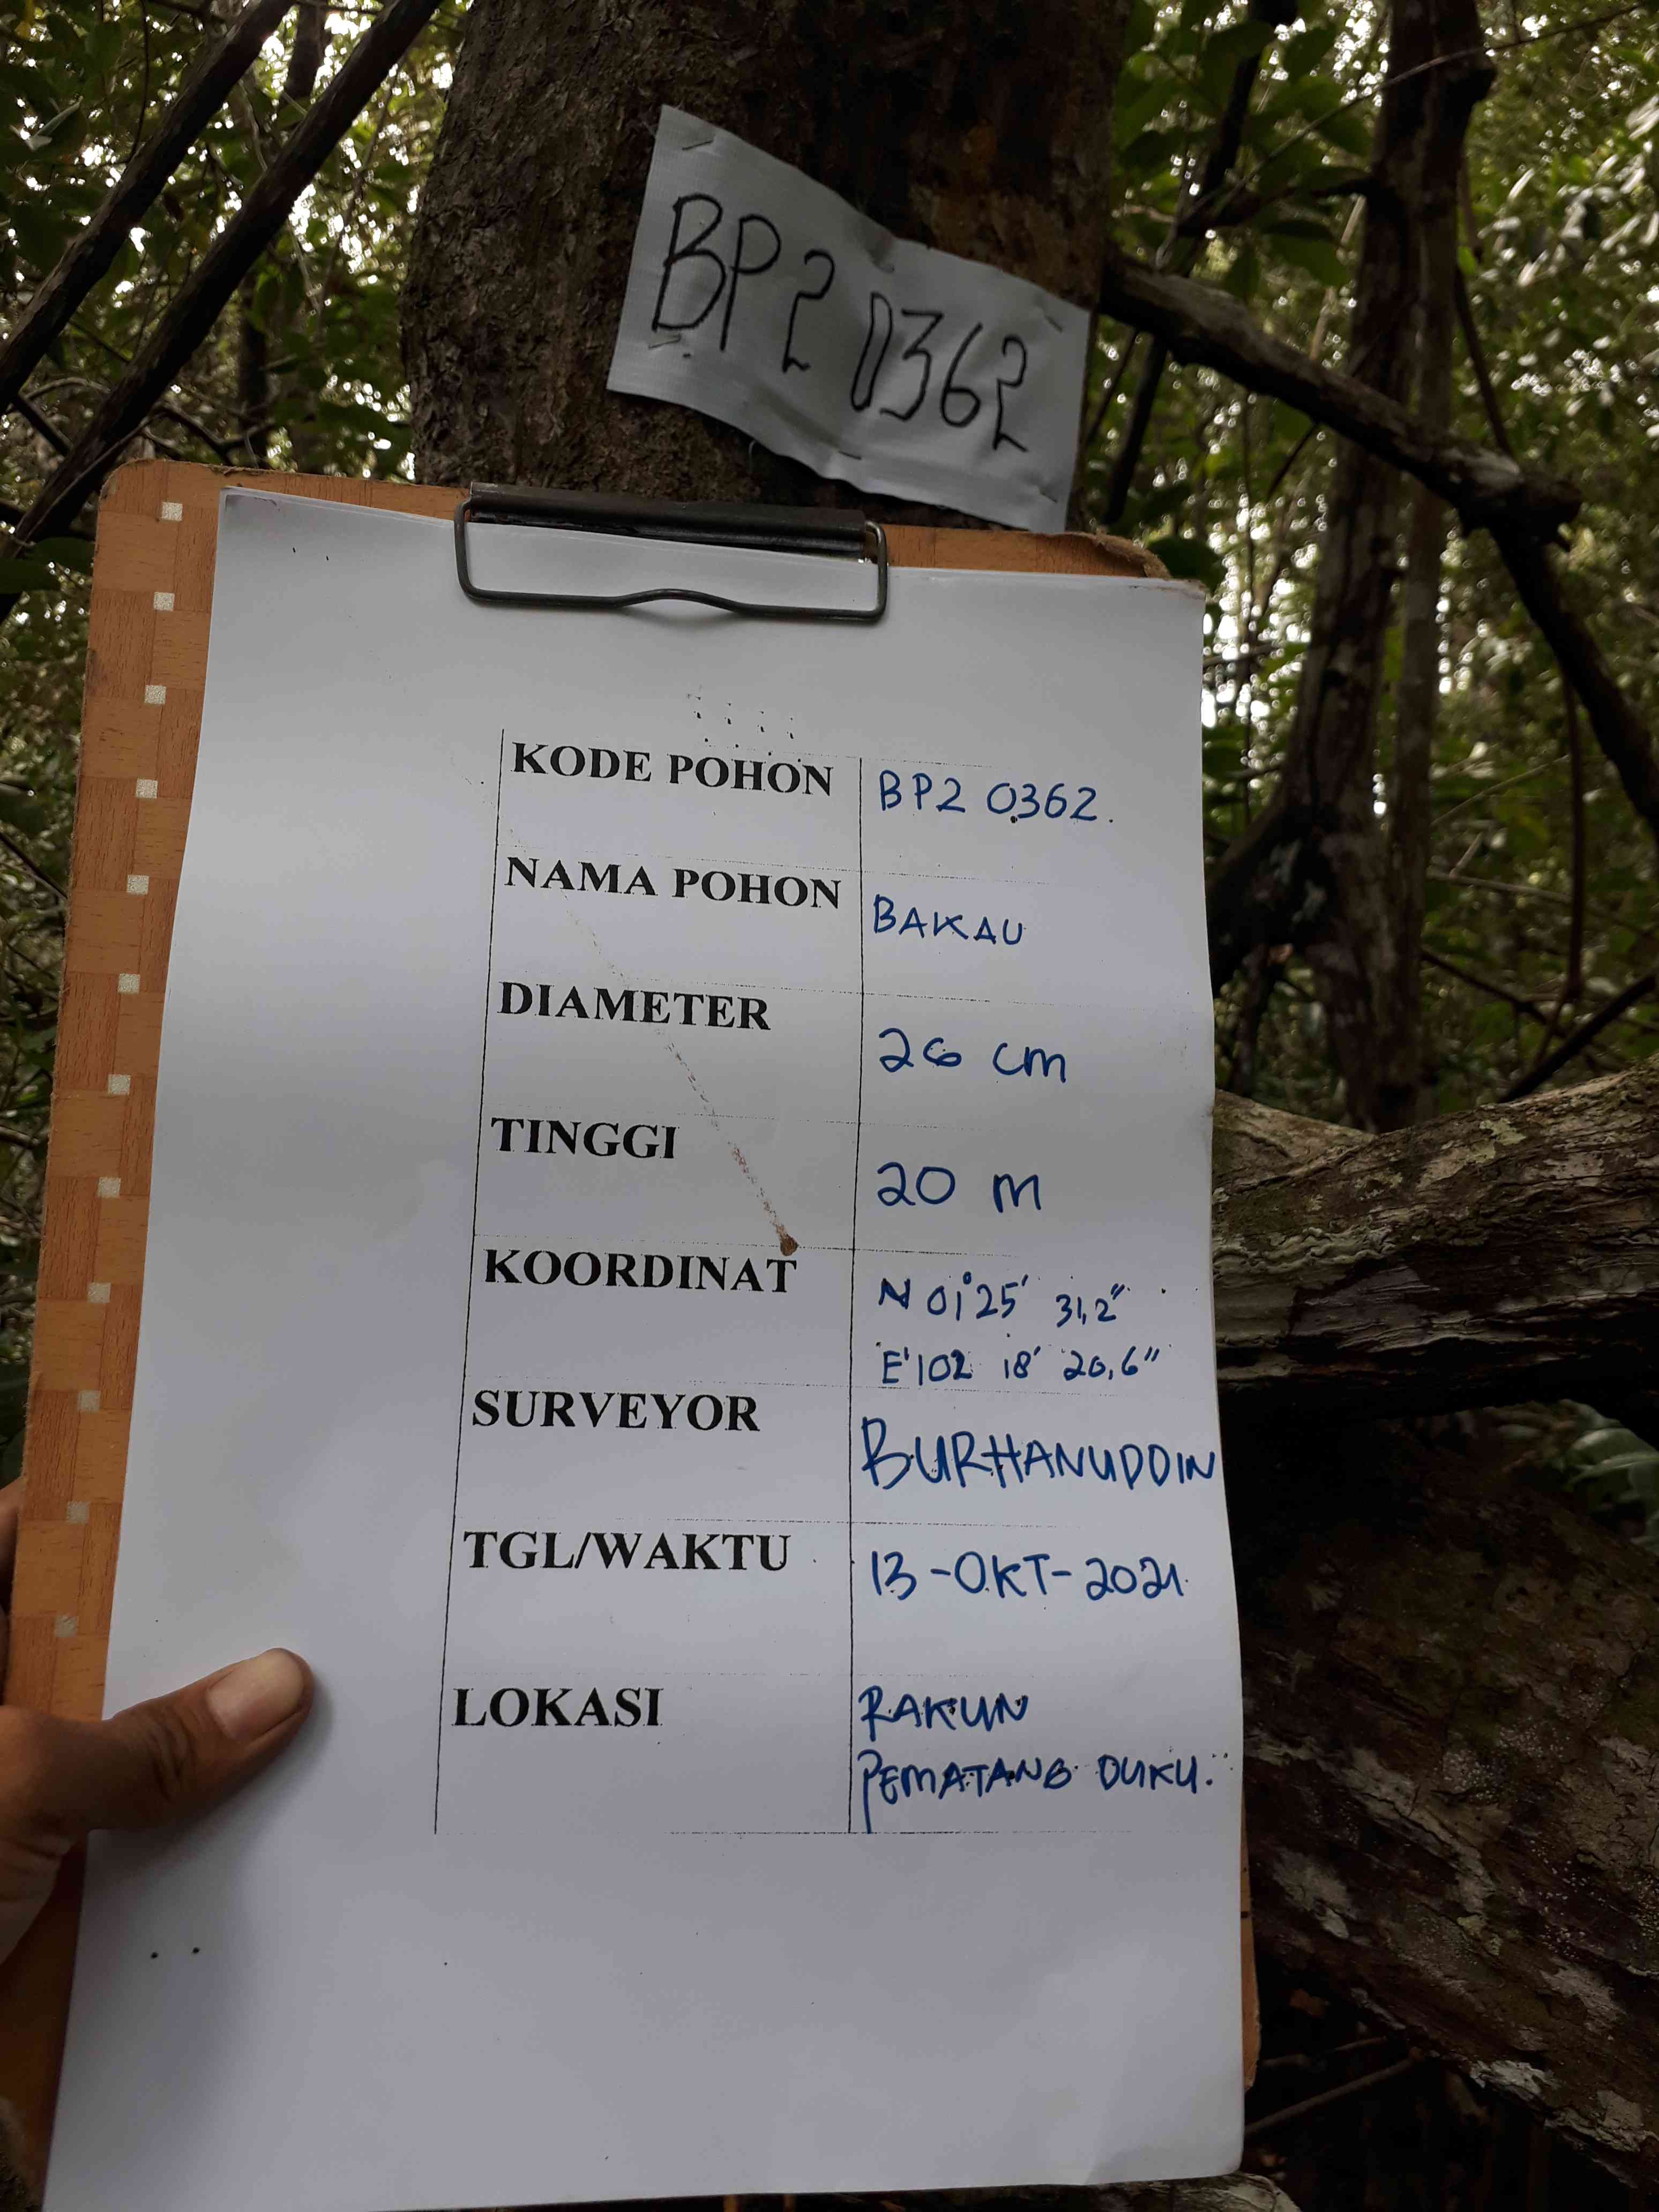 BP2 0362
KODE POHON BP2 0362.
NAMA POHON BAKAU
DIAMETER 26 cm
TINGGI 20 m
KOORDINAT N 01°25' 31,2"
E 102 18' 20,6"
SURVEYOR BURHANUDDIN
TGL/WAKTU 13-OKT-2021
LOKASI RAKUN
PEMATANG DUKU.